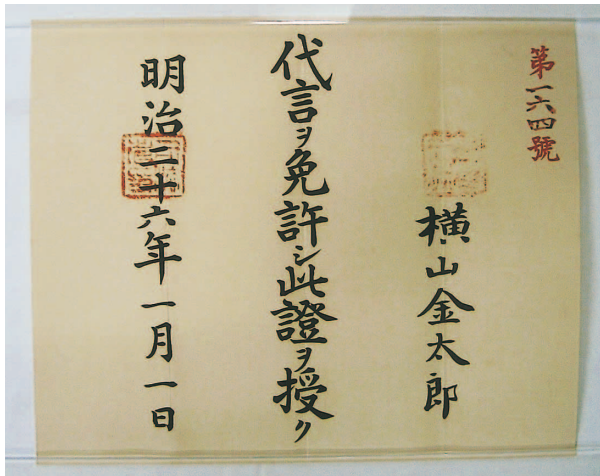 第一六四號
横山金太郎
代言ヲ免許シ此證ヲ授ク
明治二十六年一月一日